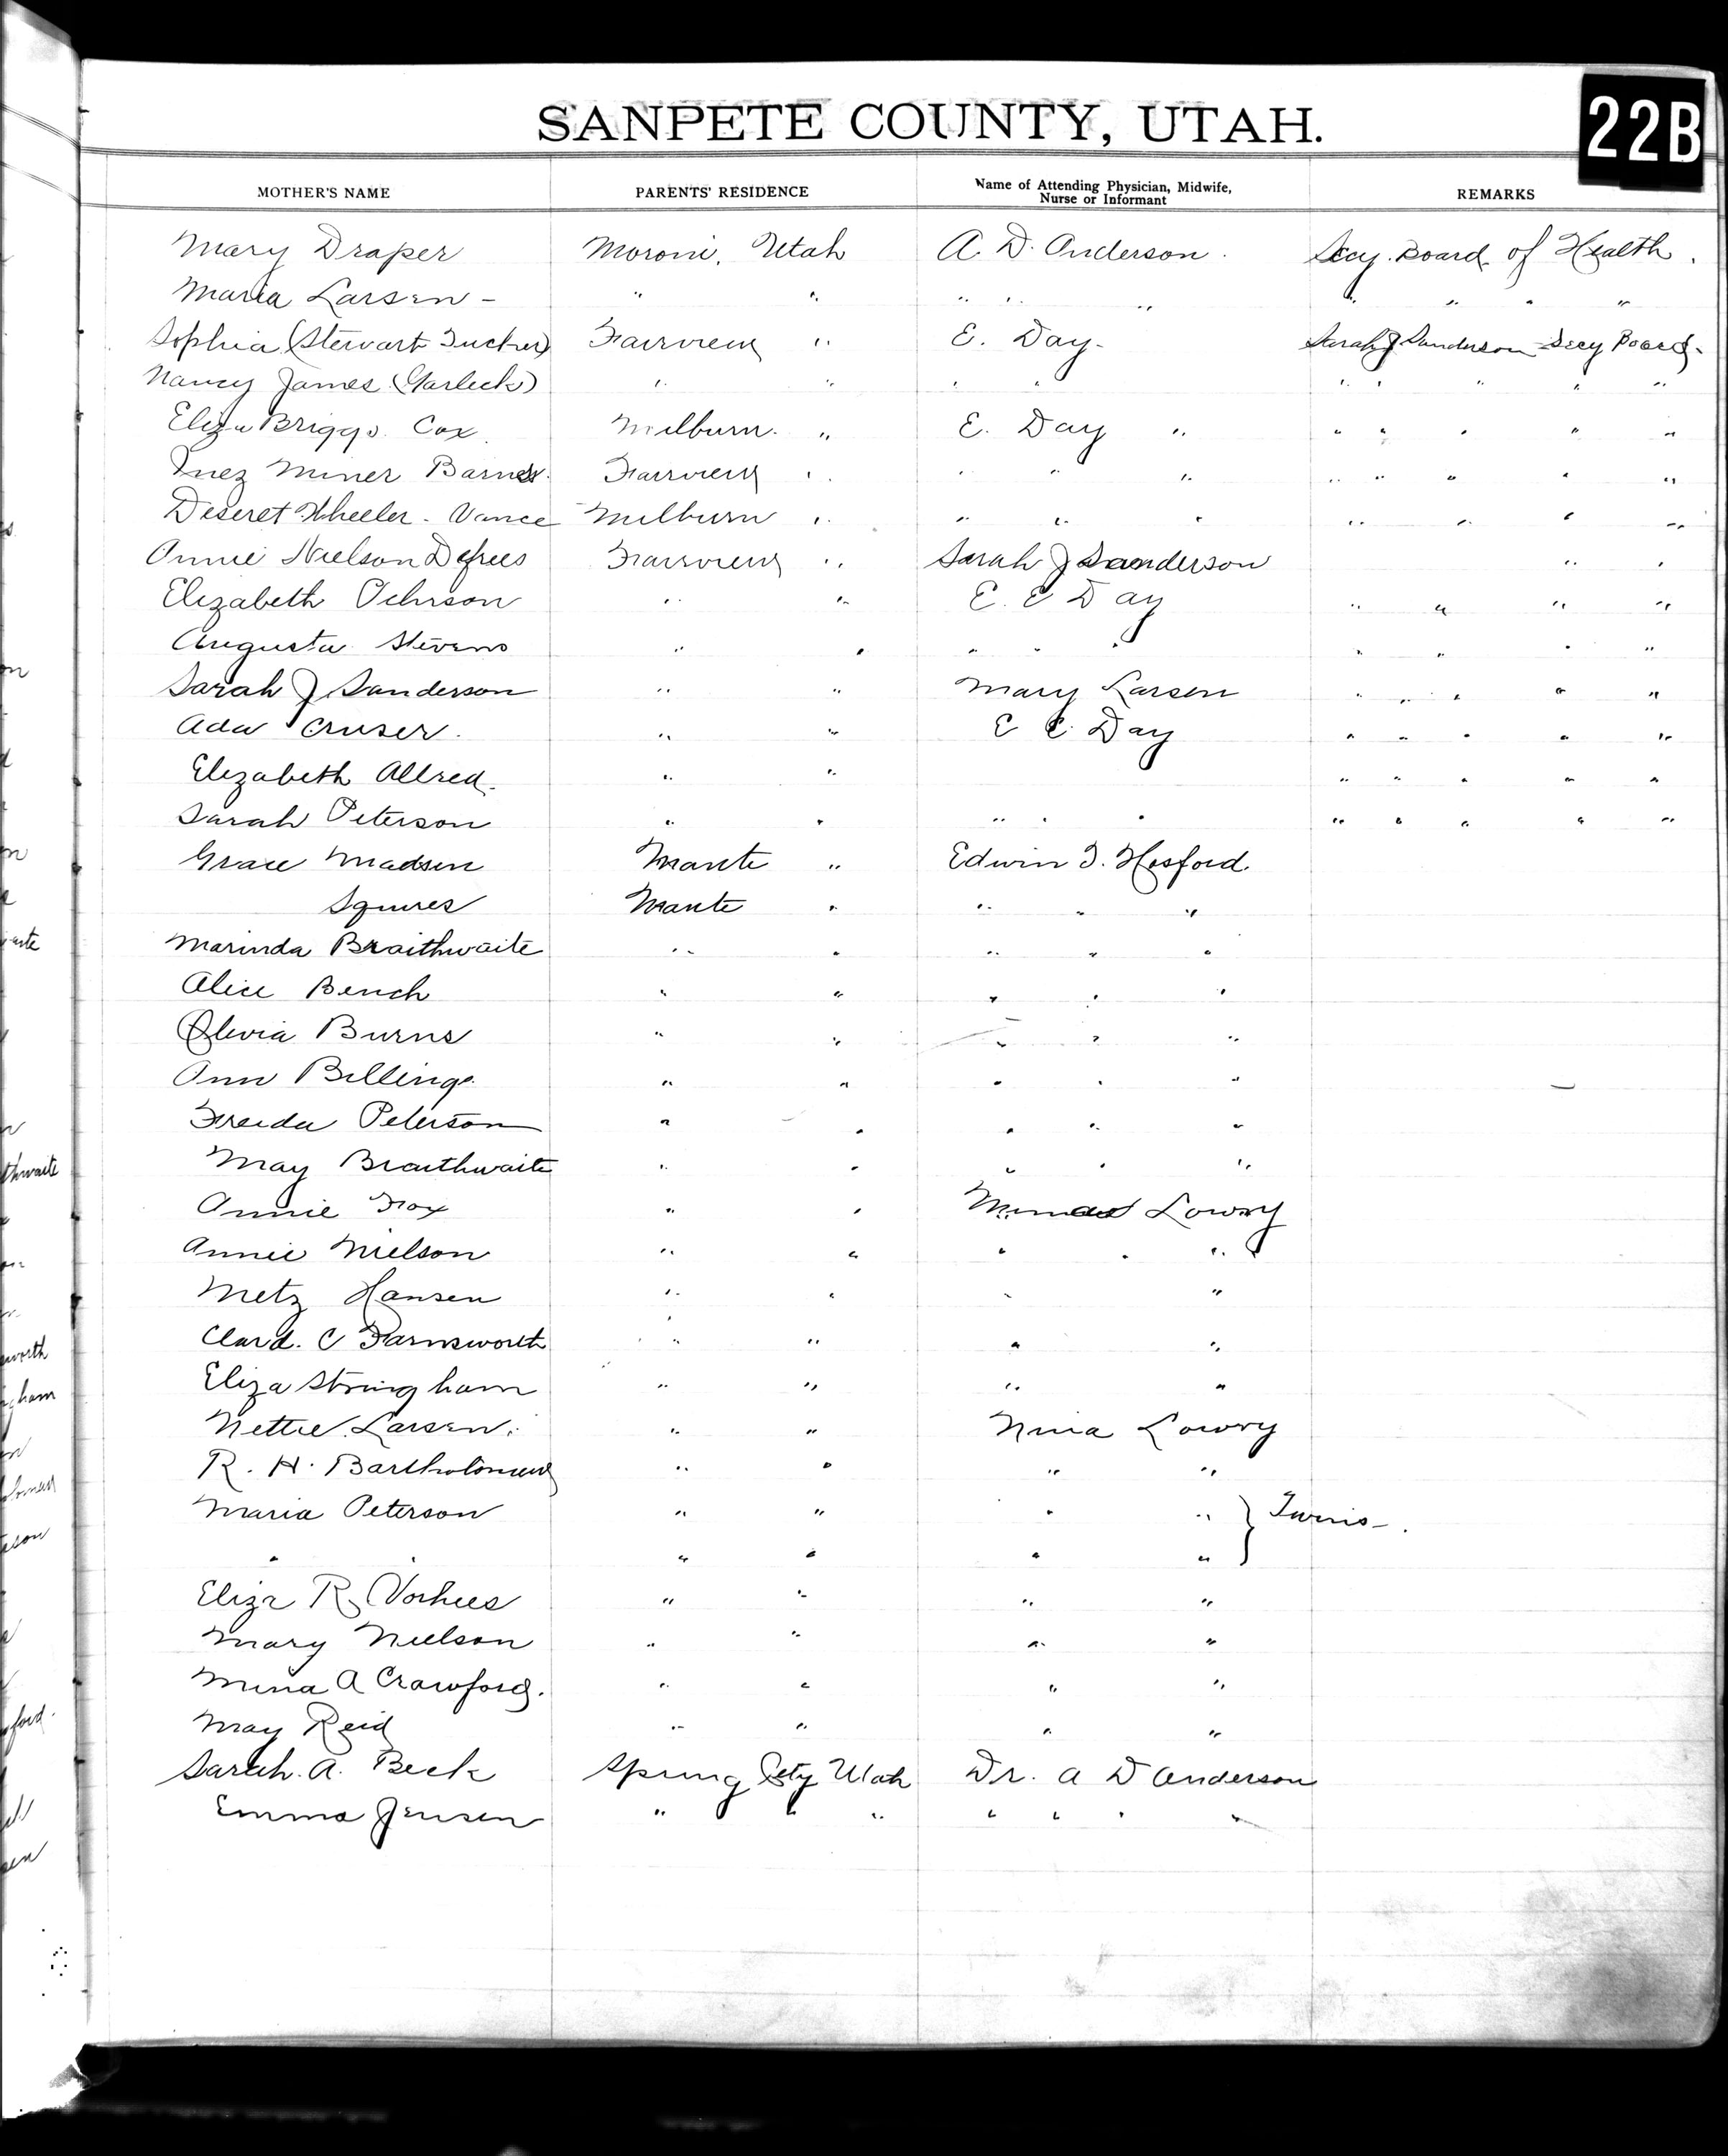 SANPETE COUNTY, UTAH.
22B
MOTHER'S NAME PARENTS' RESIDENCE Name of Attending Physician, Midwife, Nurse or Informant REMARKS
Mary Draper Moroni, Utah A. D. Anderson. Secy. Board of Health.
Maria Larsen - " " " " " " " " "
Sophia (Stewart Tucker) Fairview " E. Day- Sarah J Sanderson Secy Board.
Nancy James (Garlick) " " " " " " " " "
Eliza Briggs. Cox. Milburn. " E. Day " " " " " "
Inez Miner Barnes. Fairview " " " " " " " " "
Deseret Wheeler. Vance Milburn " " " " " " " "
Annie Nielson Defrees Fairview " Sarah J Sanderson " "
Elizabeth Pehrson " " E. E Day " " " "
Augusta Stevens " " " " " " " " "
Sarah J Sanderson " " Mary Larsen " " " " "
Ada Cruser. " " E E. Day " " " " "
Elizabeth Allred. " " " " " " "
Sarah Peterson " " " " " " " " " "
Grace Madsen Mante " Edwin T. Hosford.
Squires Mante " " " "
Marinda Braithwaite " " " " "
Alice Bench " " " " "
Olivia Burns " " " " "
Ann Billings. " " " " "
Freida Peterson " " " " "
May Braithwaite " " " " "
Annie Fox " " Lowry
Annie Nielson " " " " "
Metz Hansen " " " "
Clard. C Farnsworth " " " "
Eliza Stringham " " " "
Nettie Larsen. " " Nina Lowry
R. H. Bartholomew " " " "
Maria Peterson " " " " } Twins-.
" " " " " "
Eliza R. Vorhees " " " "
Mary Nielson " " " "
Mina A Crawford. " " " "
May Reid " " " "
Sarah. A. Beck Spring City Utah Dr. A D Anderson
Emma Jensen " " " " " " "